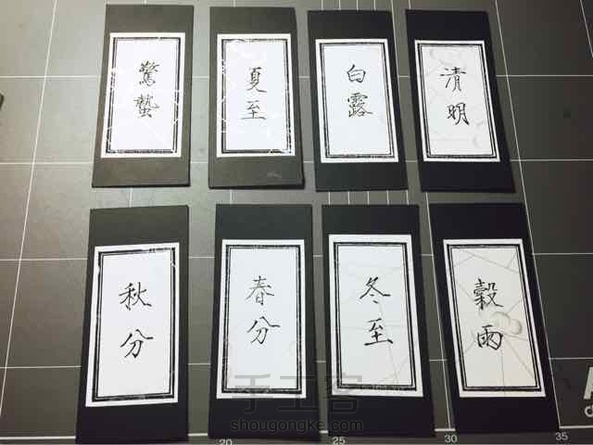 驚蟄
夏至
白露
清明
秋分
春分
冬至
穀雨
手工客
shougongke.com
20
25
30
35